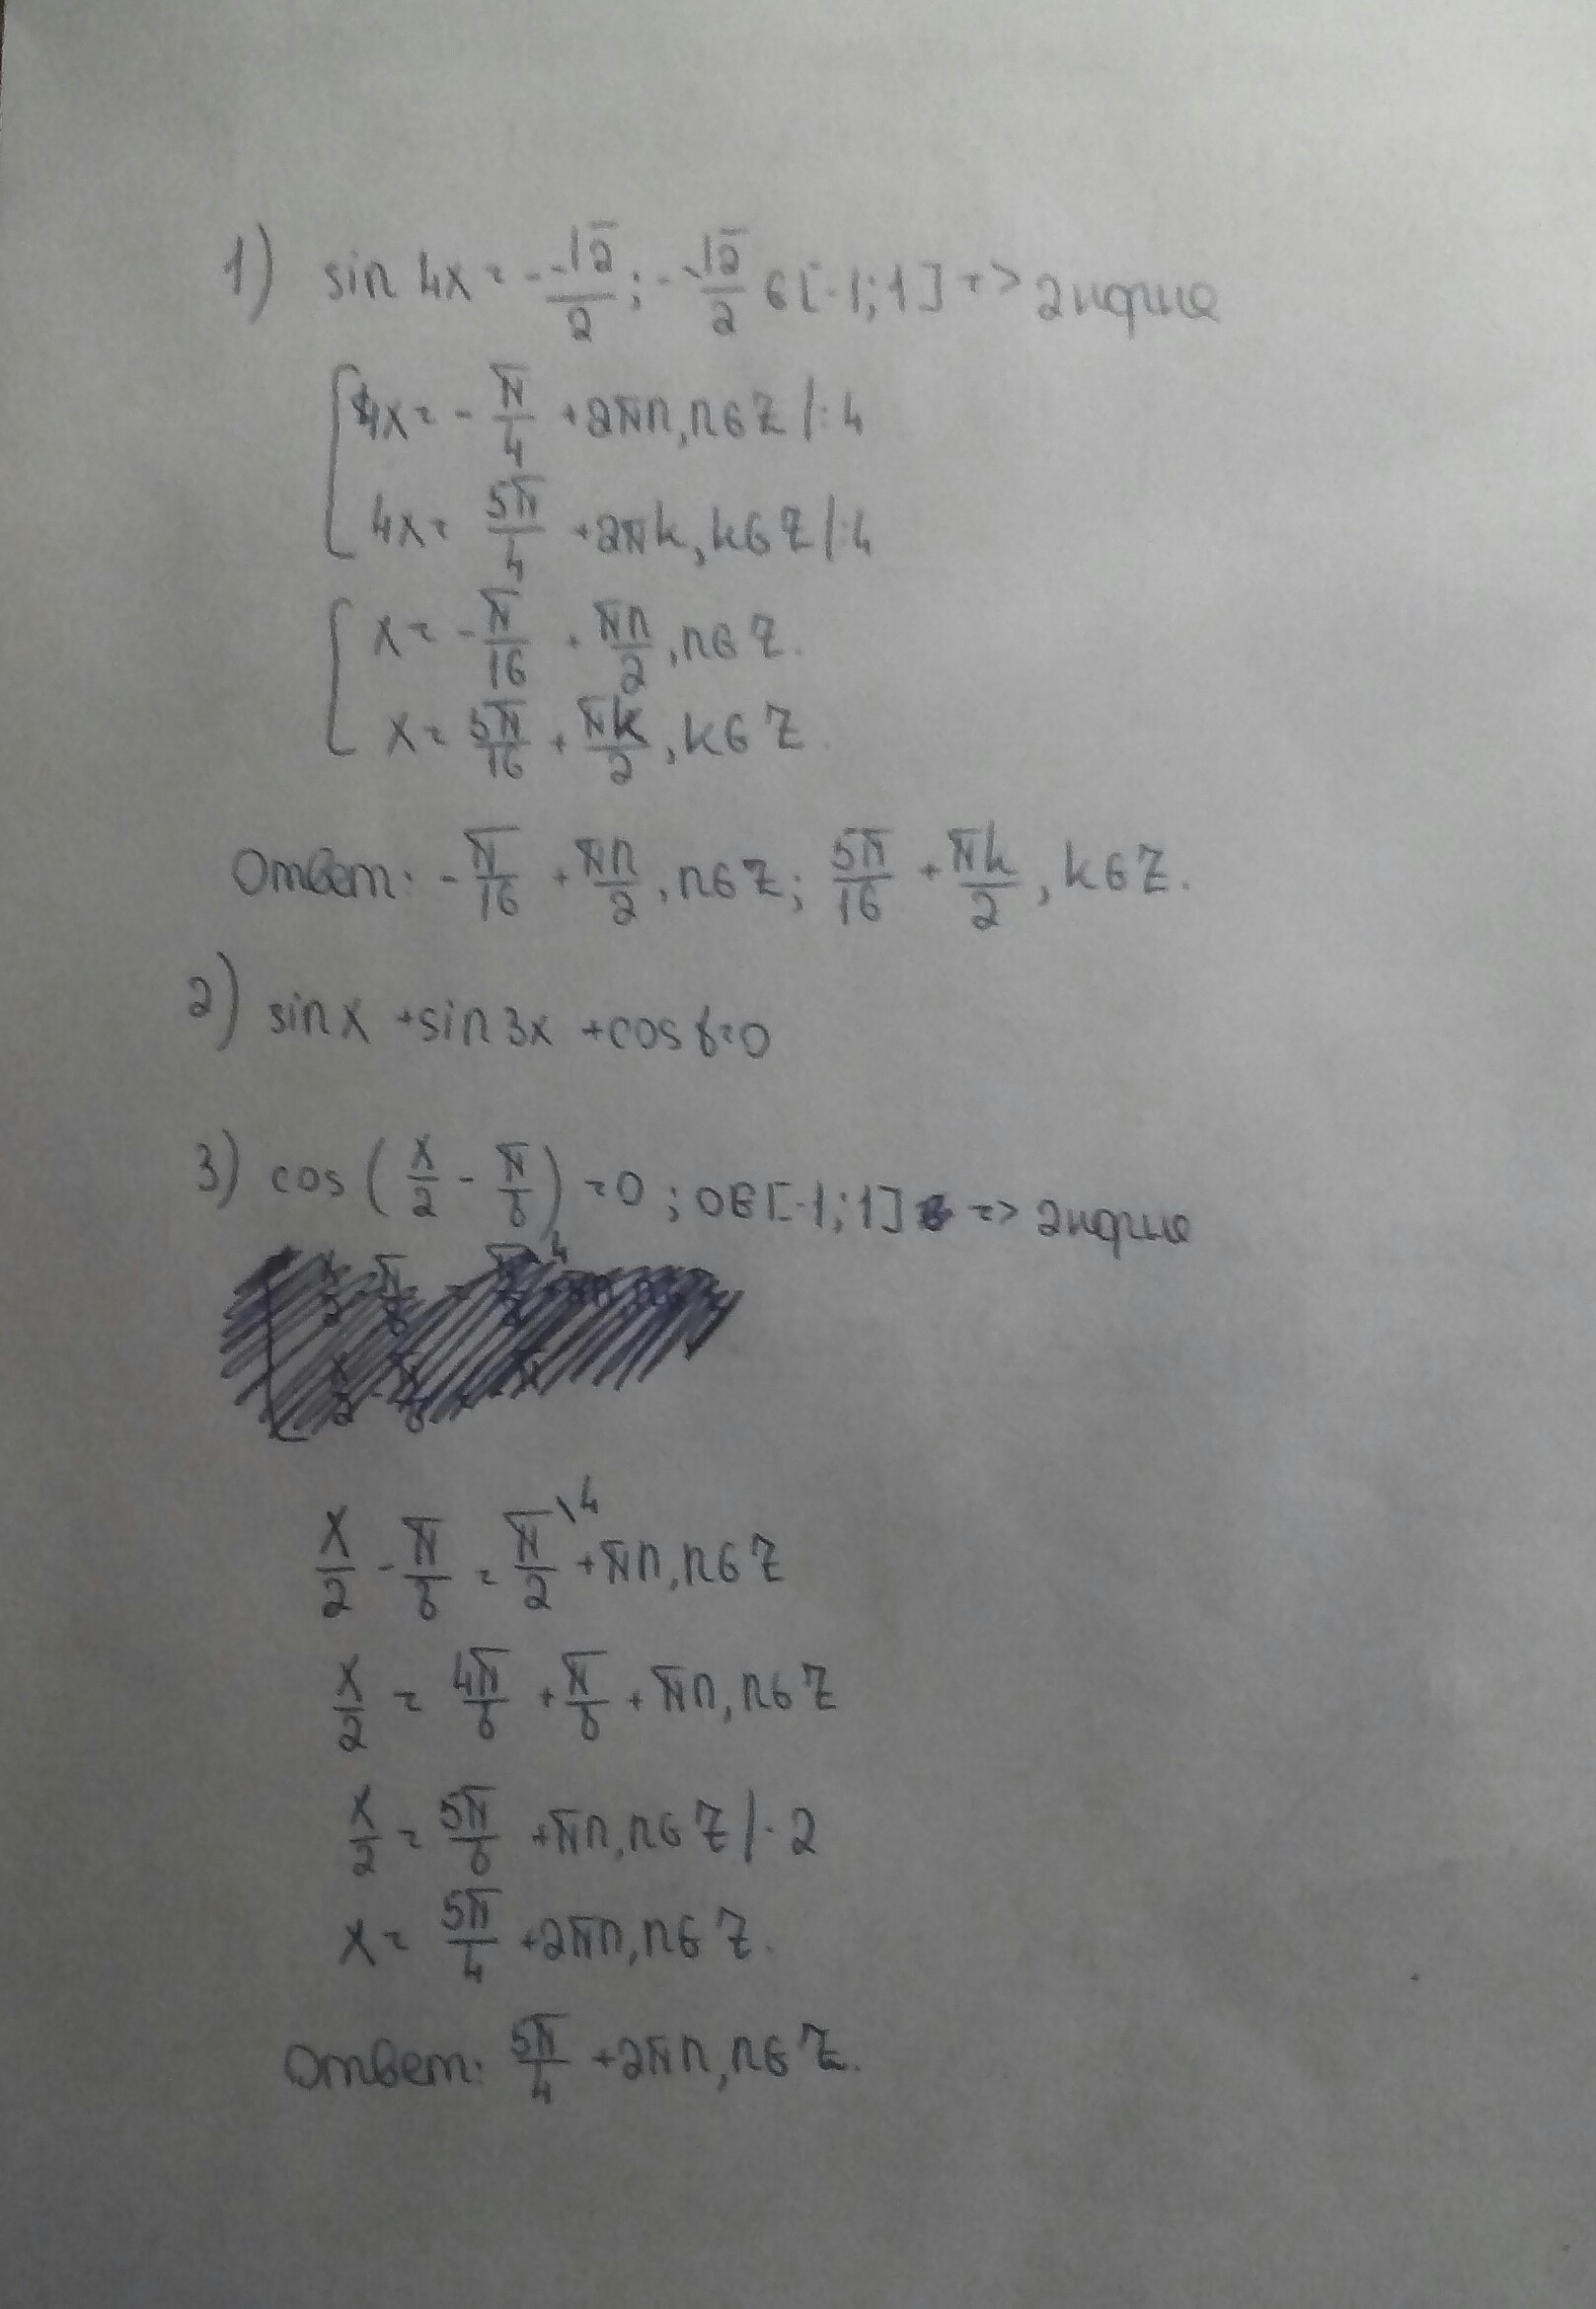 1) sin 4x = -√2/2; -√2/2 ∈ [-1;1] =>
[4x = -π/4 + 2πn, n∈Z |:4
4x = 5π/4 + 2πk, k∈Z |:4
[x = -π/16 + πn/2, n∈Z.
x = 5π/16 + πk/2, k∈Z.
Ответ: -π/16 + πn/2, n∈Z; 5π/16 + πk/2, k∈Z.
2) sinx + sin3x + cos8=0
3) cos(x/2 - π/8) = 0; 0∈[-1;1] =>
x/2 - π/8 = π/2 \4 + πn, n∈Z
x/2 = 4π/8 + π/8 + πn, n∈Z
x/2 = 5π/8 + πn, n∈Z |·2
x = 5π/4 + 2πn, n∈Z.
Ответ: 5π/4 + 2πn, n∈Z.